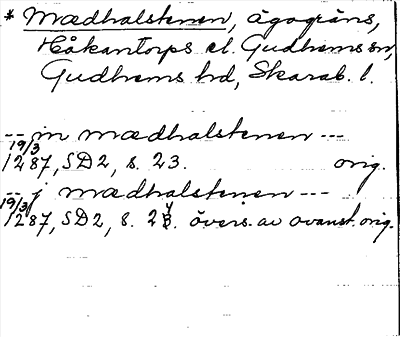 * Mædhalstenen, ägogräns,
Håkantorps el. Gudhems sn,
Gudhems hd, Skarab. l.
-- in mædhalstenen ---
19/3
1287, SD2, s. 23. orig.
-- j mædhalstenen ---
19/3
1287, SD2, s. 24. övers. av ovanst. orig.